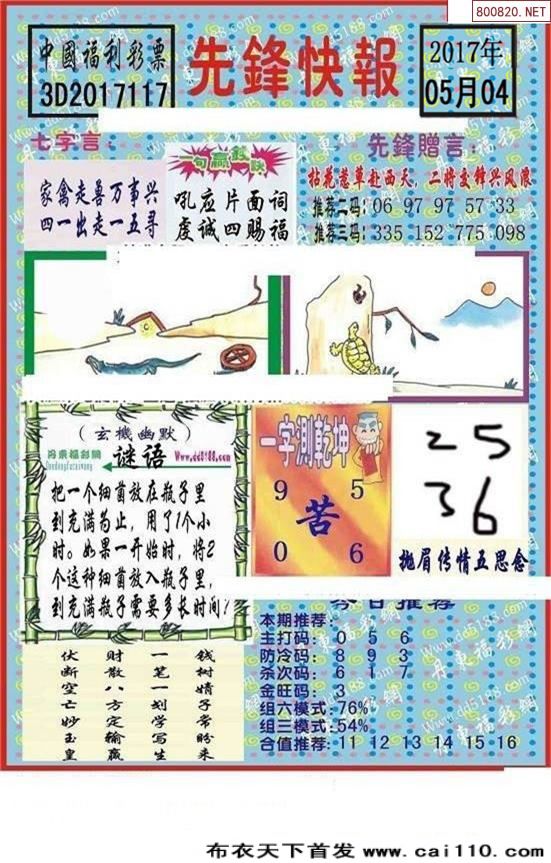 800820.NET
中國福利彩票
3D2017117
先鋒快報
2017年
05月04
七字言:
家禽走喜万事兴
四一出走一五寻
一句赢钱诀
吼应片面词
虔诚四赐福
先鋒贈言:
拈花惹草赴西天,二将交锋兴风浪
推荐二码: 06 97 97 57 33
推荐三码: 335 152 775 098
(玄機幽默)
丹東福彩網
Dandongfucaiwang
谜语
Www.dd5188.com
把一个细菌放在瓶子里
到充满为止,用了1个小
时。如果一开始时,将2
个这种细菌放入瓶子里,
到充满瓶子需要多长时间?
一字測乾坤
9 5
苦
0 6
25
36
抛眉传情五思念
今日推荐
本期推荐:
主打码: 0 5 6
防冷码: 8 9 3
杀次码: 6 1 7
金旺码: 3
组六模式:76%
组三模式:54%
合值推荐: 11 12 13 14 15 16
伏 财 一 钱
断 散 笔 树
空 八 一 婧
亡 方 划 子
妙 定 学 常
玉 输 写 盼
皇 赢 生 来
布衣天下首发 www.cai110.com